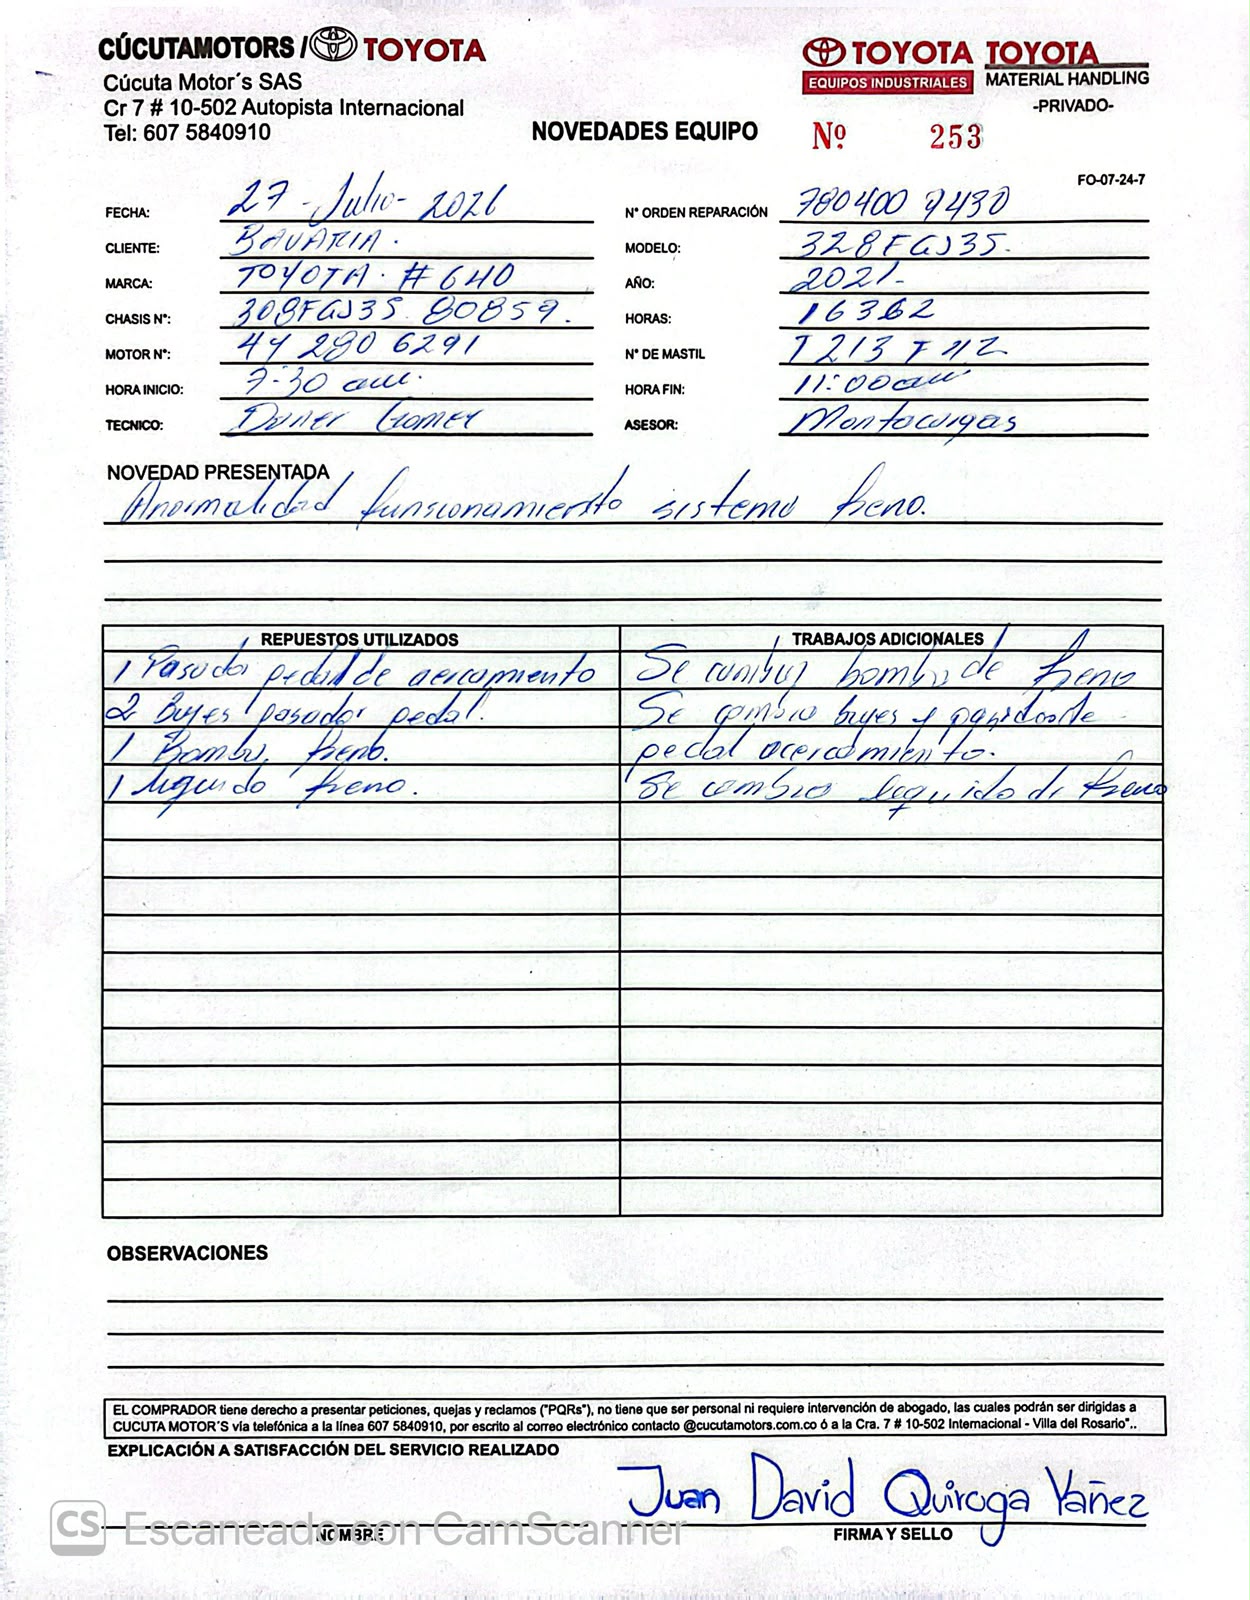 CÚCUTAMOTORS / TOYOTA
Cúcuta Motor´s SAS
Cr 7 # 10-502 Autopista Internacional
Tel: 607 5840910
TOYOTA TOYOTA
EQUIPOS INDUSTRIALES MATERIAL HANDLING
-PRIVADO-
NOVEDADES EQUIPO Nº 253
FO-07-24-7
FECHA: 27 - Julio - 2026 N° ORDEN REPARACIÓN 780400 9430
CLIENTE: BAVARIA. MODELO: 328FGJ35.
MARCA: TOYOTA. # 640 AÑO: 2021-
CHASIS N°: 308FGJ35. 80859. HORAS: 16362
MOTOR N°: 4Y 280 6291 N° DE MASTIL
HORA INICIO: 7:30 am. HORA FIN: 11:00am
TECNICO: Gomez ASESOR: Montacargas
NOVEDAD PRESENTADA
Anormalidad funsionamiento sistema freno.
REPUESTOS UTILIZADOS TRABAJOS ADICIONALES
1 Pasador pedal de acercamiento Se bomba de freno
2 Bujes pasador pedal. Se cambio bujes y
1 Bomba freno. pedal acercamiento.
1 liquido freno. Se cambio liquido de freno
OBSERVACIONES
EL COMPRADOR tiene derecho a presentar peticiones, quejas y reclamos ("PQRs"), no tiene que ser personal ni requiere intervención de abogado, las cuales podrán ser dirigidas a
CUCUTA MOTOR´S vía telefónica a la línea 607 5840910, por escrito al correo electrónico contacto @cucutamotors.com.co ó a la Cra. 7 # 10-502 Internacional - Villa del Rosario"..
EXPLICACIÓN A SATISFACCIÓN DEL SERVICIO REALIZADO
Juan David Quiroga Yañez
NOMBRE FIRMA Y SELLO
CS Escaneado con CamScanner